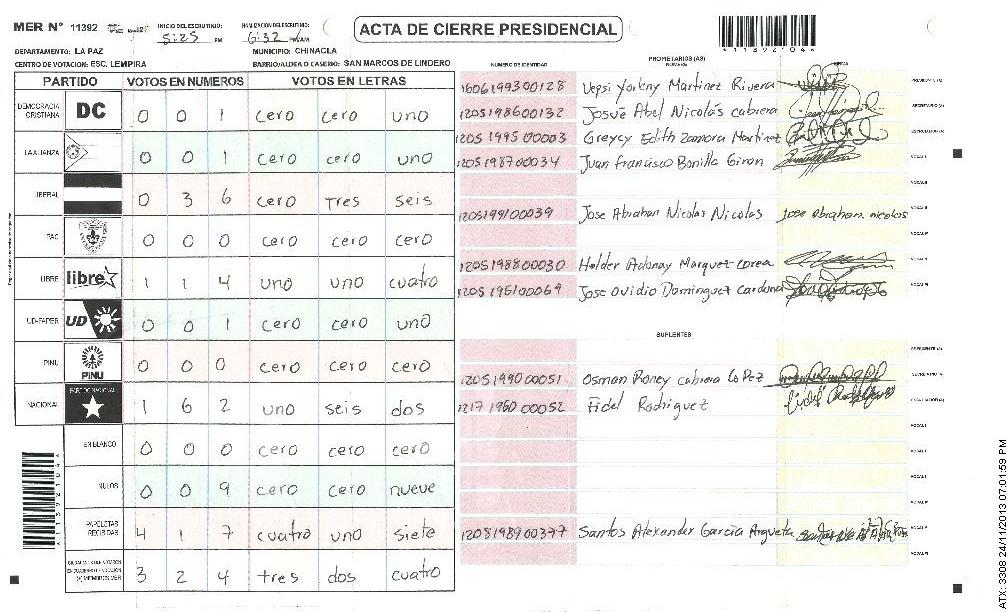 MER N° 11392
INICIO DEL ESCRUTINIO: 5:25 PM
FINALIZACION DEL ESCRUTINIO: 6:32 PM/AM
ACTA DE CIERRE PRESIDENCIAL
11392104
DEPARTAMENTO: LA PAZ
MUNICIPIO: CHINACLA
CENTRO DE VOTACION: ESC. LEMPIRA
BARRIO/ALDEA O CASERIO: SAN MARCOS DE LINDERO
PARTIDO VOTOS EN NUMEROS VOTOS EN LETRAS
DEMOCRACIA CRISTIANA DC 0 0 1 cero cero uno
LA ALIANZA 0 0 1 cero cero uno
LIBERAL 0 3 6 cero tres seis
PAC 0 0 0 cero cero cero
LIBRE libre 1 1 4 uno uno cuatro
UD-FAPER UD 0 0 1 cero cero uno
PINU PINU 0 0 0 cero cero cero
NACIONAL PARTIDO NACIONAL 1 6 2 uno seis dos
EN BLANCO 0 0 0 cero cero cero
NULOS 0 0 9 cero cero nueve
PAPELETAS RECIBIDAS 4 1 7 cuatro uno siete
(+) MIEMBROS MER 3 2 4 tres dos cuatro
NUMERO DE IDENTIDAD
PROPIETARIOS (AS)
NOMBRE
FIRMA
1606199300128 Yepsi Yorleny Martinez Rivera PRESIDENTE (A)
1205198600132 Josué Abel Nicolás cabrera SECRETARIO (A)
1205 1995 00003 Greycy Edith Zamora Martinez ESCRUTADOR (A)
1205198700034 Juan Francisco Bonilla Giron VOCAL I
VOCAL II
1205199100039 Jose Abrahan Nicolas Nicolas jose abraham nicolas VOCAL III
VOCAL IV
1205198800030 Holder Adonay Marquez corea VOCAL V
1205195100069 Jose Ovidio Dominguez Cardona VOCAL VI
SUPLENTES
PRESIDENTE (A)
1205199000051 Osman Roney cabrera Lopez SECRETARIO (A)
1217 1960 00052 Fidel Rodriguez ESCRUTADOR (A)
VOCAL I
VOCAL II
VOCAL III
VOCAL IV
1208198900377 Santos Alexander Garcia Argueta VOCAL V
VOCAL VI
ATX: 3308 24/11/2013 07:01:59 PM